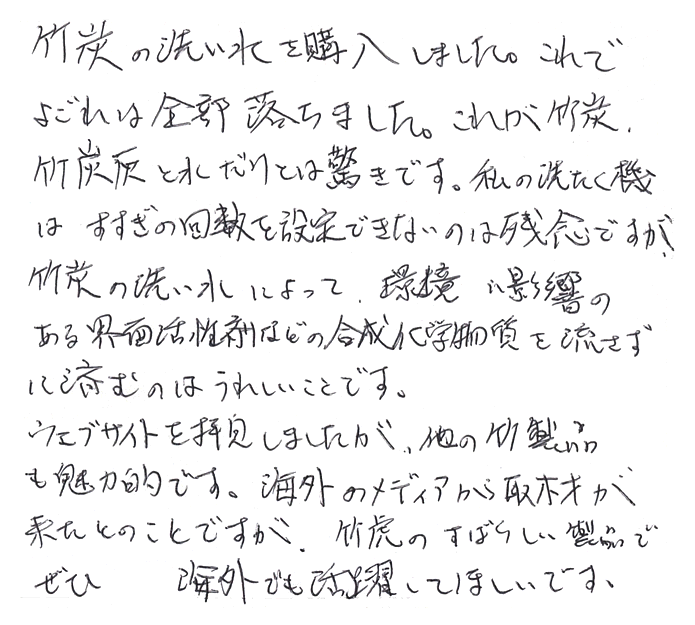 竹炭の洗い水を購入しました。これで
よごれは全部落ちました。これが竹炭、
竹炭灰と水だけとは驚きです。私の洗たく機
は すすぎの回数を設定できないのは残念ですが、
竹炭の洗い水によって、環境に影響の
ある界面活性剤などの合成化学物質を流さず
に済むのはうれしいことです。
ウェブサイトを拝見しましたが、他の竹製品
も魅力的です。海外のメディアから取材が
来たとのことですが、竹虎のすばらしい製品で
ぜひ 海外でも活躍してほしいです。